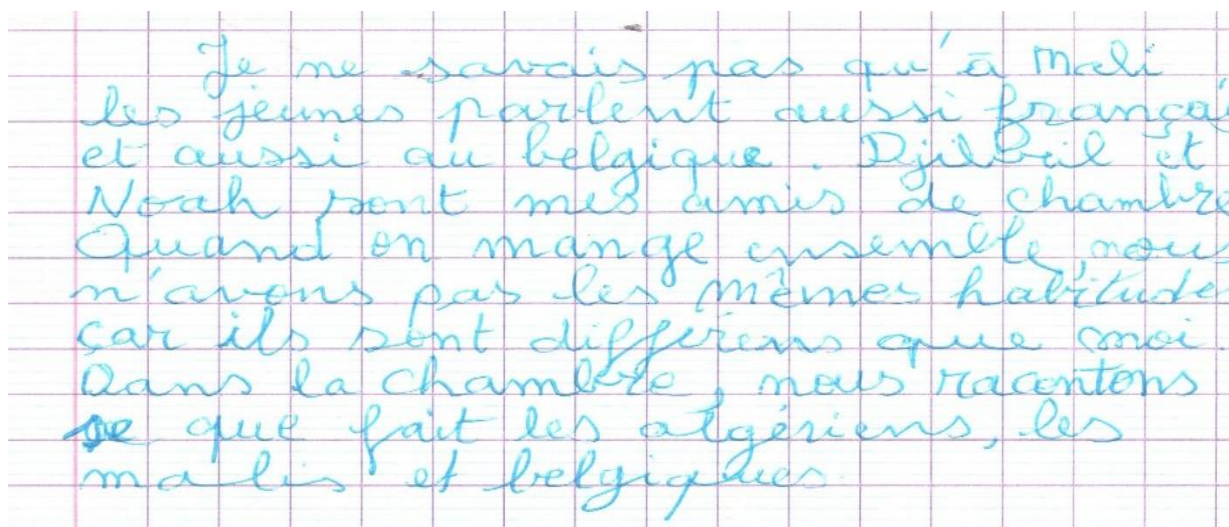 Je ne savais pas qu'à Mali
les jeunes parlent aussi françai
et aussi au belgique. Djilbril et
Noah sont mes amis de chambre
Quand on mange ensemble, nous
n'avons pas les mêmes habitude
car ils sont différens que moi.
Dans la chambre, nous racontons
se que fait les algériens, les
malis et belgiques.